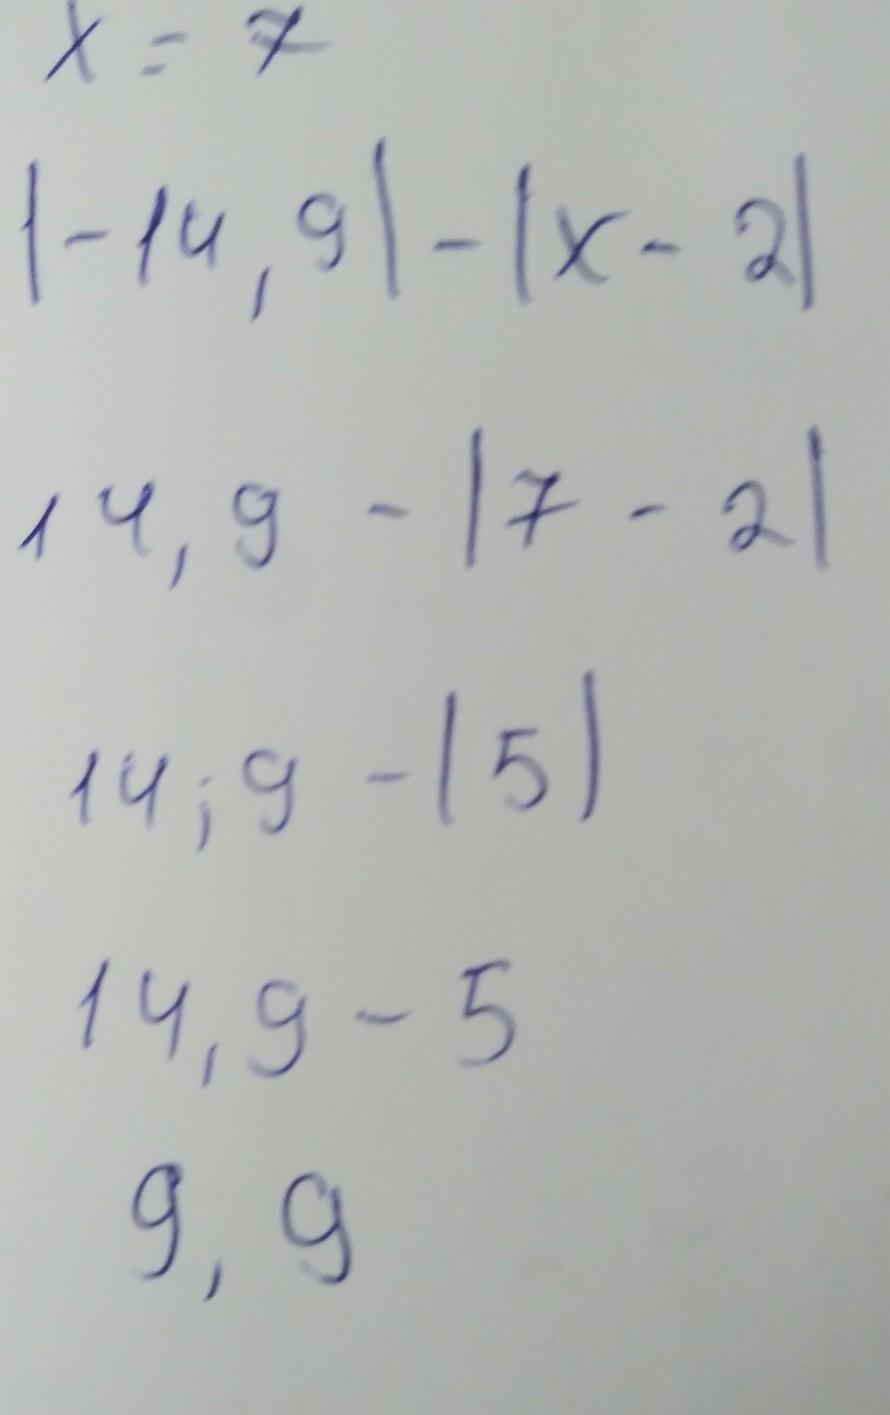 x = 7
|-14,9| - |x - 2|
14,9 - |7 - 2|
14;9 - |5|
14,9 - 5
9,9